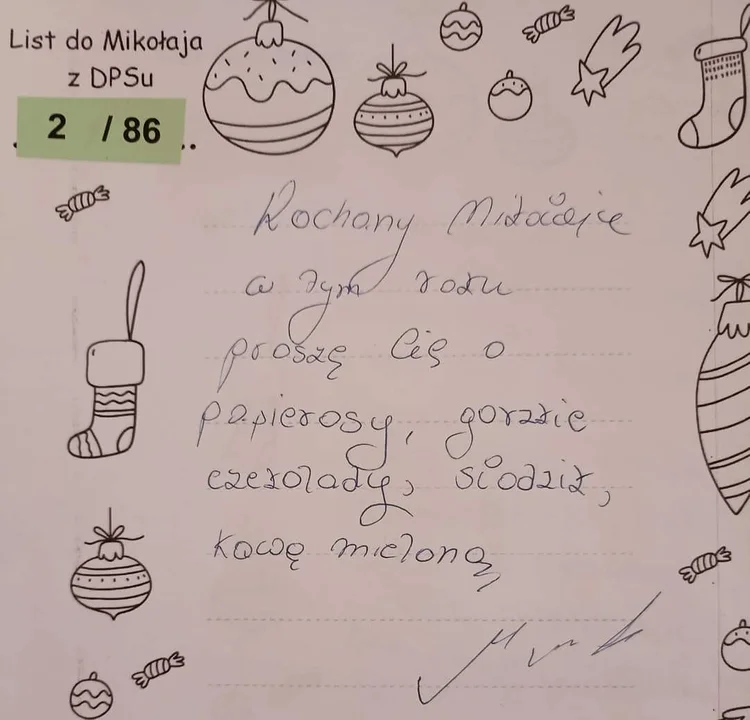 List do Mikołaja
z DPSu
2 / 86
Kochany Mikołajie
w tym roku
proszę Cię o
papierosy, gorzkie
czekolady, słodzik,
kawę mieloną